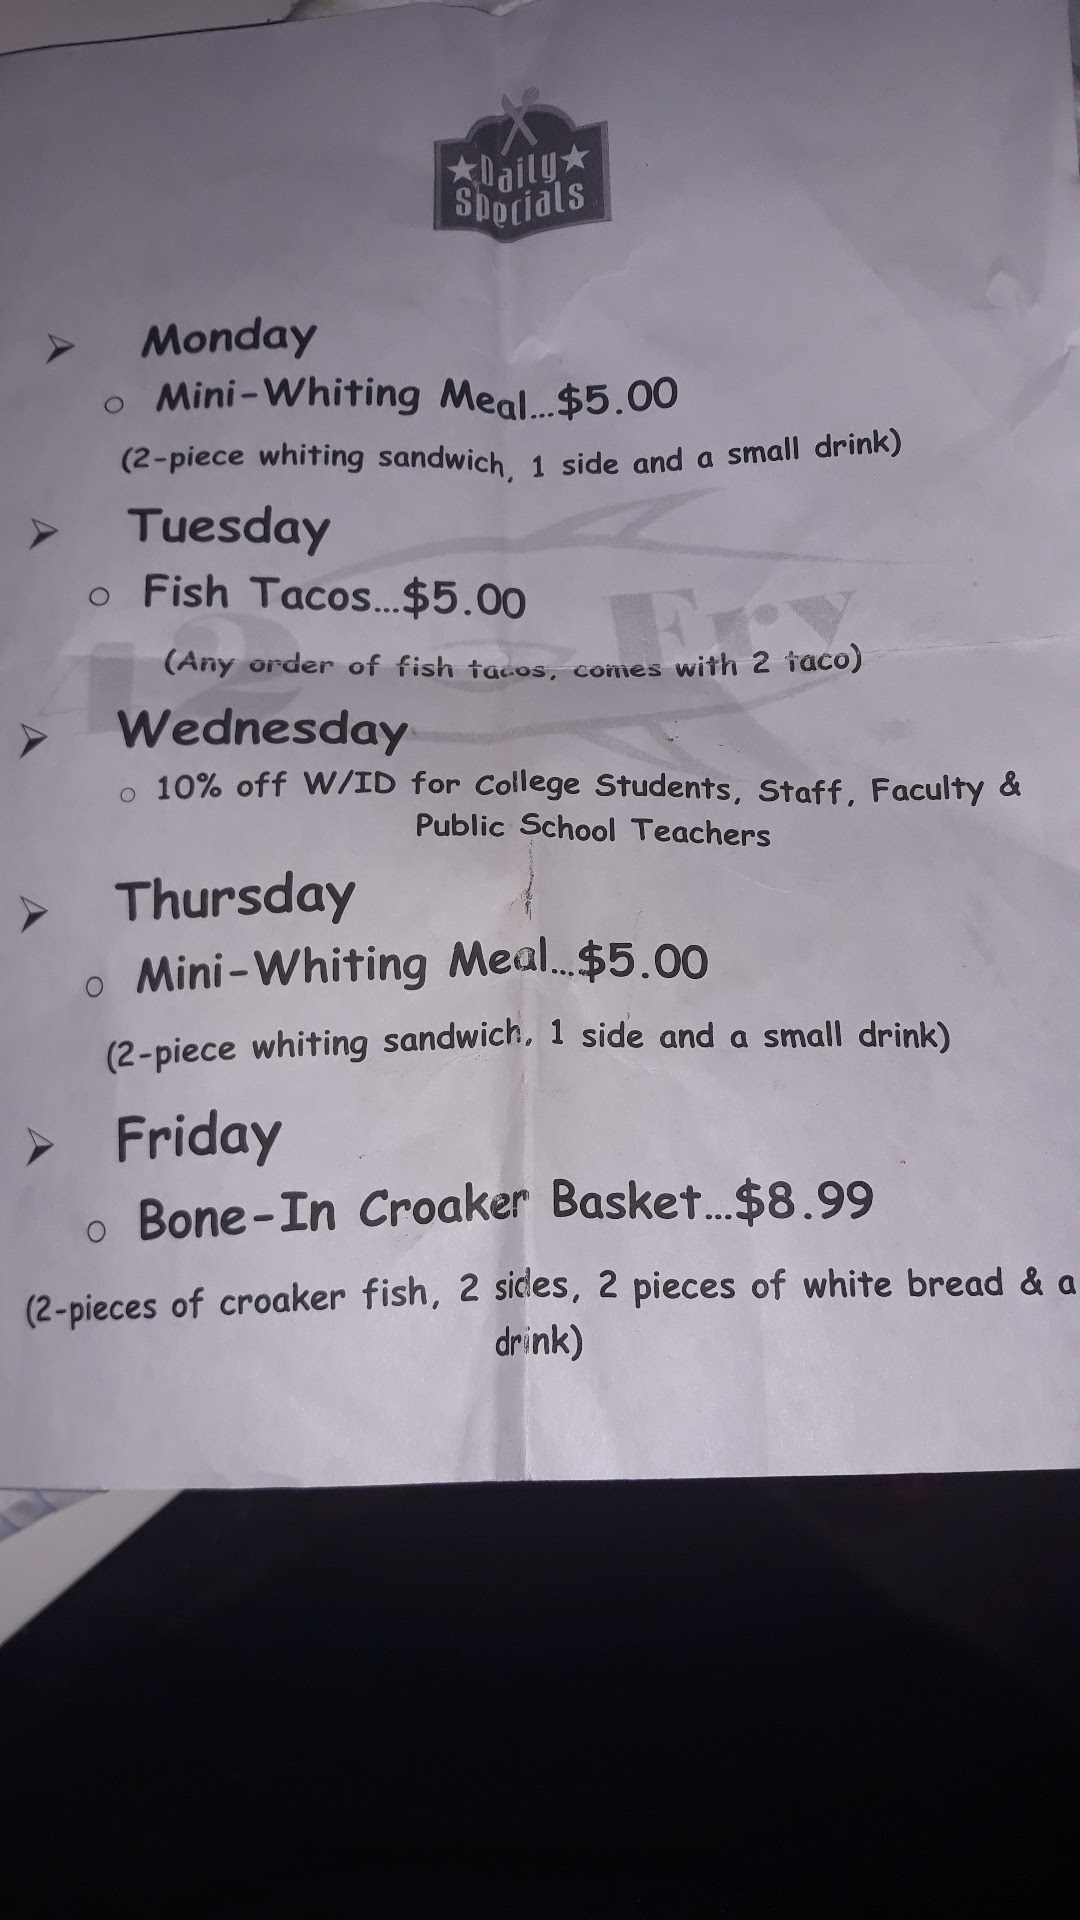 Daily
Specials
Monday
Mini-Whiting Meal...$5.00
(2-piece whiting sandwich, 1 side and a small drink)
Tuesday
Fish Tacos...$5.00
42 Fry
(Any order of fish tacos, comes with 2 taco)
Wednesday
10% off W/ID for College Students, Staff, Faculty &
Public School Teachers
Thursday
Mini-Whiting Meal...$5.00
(2-piece whiting sandwich, 1 side and a small drink)
Friday
Bone-In Croaker Basket...$8.99
(2-pieces of croaker fish, 2 sides, 2 pieces of white bread & a
drink)